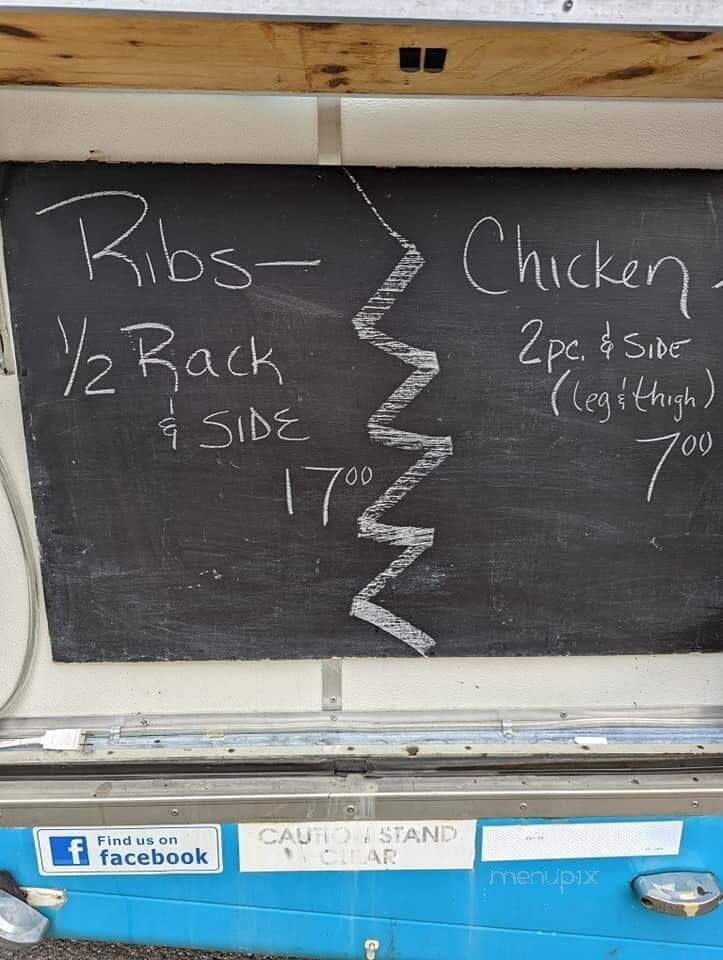 Ribs—
1/2 Rack
& SIDE
17.00
Chicken -
2pc. & SIDE
(leg & thigh)
7.00
f Find us on
facebook
CAUTION STAND
CLEAR
menupix